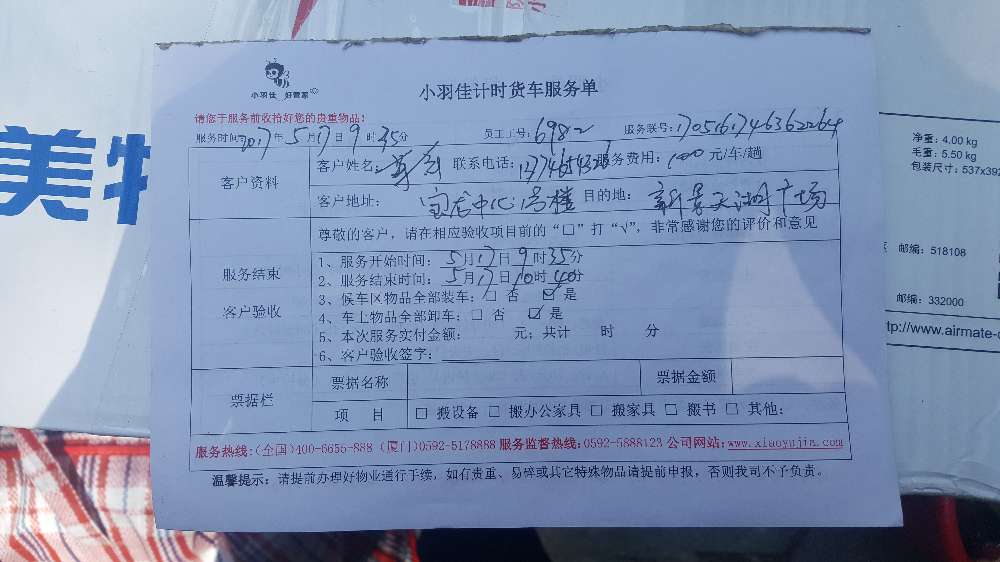 小羽佳 好管家
小羽佳计时货车服务单
请您于服务前收拾好您的贵重物品!
服务时间:2017年5月17日9时35分 员工工号:6982 服务联号:1705161746362264
客户资料
客户姓名: 联系电话: 服务费用:100元/车/趟
客户地址: 宝龙中心1号楼 目的地: 新景天湖广场
服务结束
客户验收
尊敬的客户,请在相应验收项目前的“□”打“√”,非常感谢您的评价和意见
1、服务开始时间: 5月17日9时35分
2、服务结束时间: 5月17日10时40分
3、候车区物品全部装车: □ 否 ☑ 是
4、车上物品全部卸车: □ 否 ☑ 是
5、本次服务实付金额: 元; 共计 时 分
6、客户验收签字:
票据栏
票据名称 票据金额
项 目 □ 搬设备 □ 搬办公家具 □ 搬家具 □ 搬书 □ 其他:
服务热线:(全国)400-6656-888 (厦门)0592-5178888 服务监督热线:0592-5888123 公司网站:www.xiaoyujia.com
温馨提示:请提前办理好物业通行手续,如有贵重、易碎或其它特殊物品请提前申报,否则我司不予负责。
美
净重: 4.00 kg
毛重: 5.50 kg
包装尺寸: 537x392
邮编: 518108
邮编: 332000
ttp://www.airmate-c